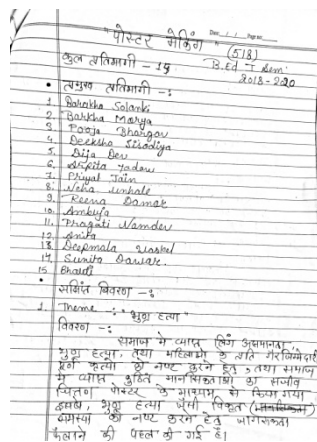 Date / / Page no
"पोस्टर मेकिंग" (518)
कुल प्रतिभागी - 14 B.Ed I Sem
2018-2020
• प्रमुख प्रतिभागी -:
1. Barkha Solanki
2. Barkha Morya
3. Pooja Bhargav
4. Deeksha Sisodiya
5. Dija Dev
6. Arpita Yadav
7. Priyal Jain
8. Neha
9. Reena Damar
10. Ambuja
11. Pragati Namdev
12. Anita
13. Deepmala
14. Sunita Dawar
15 Bharti
• संक्षिप्त विवरण -:
1. Theme -: "भ्रूण हत्या"
विवरण -:
समाज में व्याप्त लिंग असमानता,
भ्रूण हत्या, तथा महिलाओं के प्रति गैरजिम्मेदारी
पूर्ण कृत्यों को नष्ट करने हेतु, तथा समाज
में व्याप्त कुंठित मानसिकताओं का सजीव
चित्रण पोस्टर के माध्यम से किया गया
इसमें, भ्रूण हत्या जैसी विकृत
समस्या को नष्ट करने हेतु जागरूकता
फैलाने की पहल की गई है।